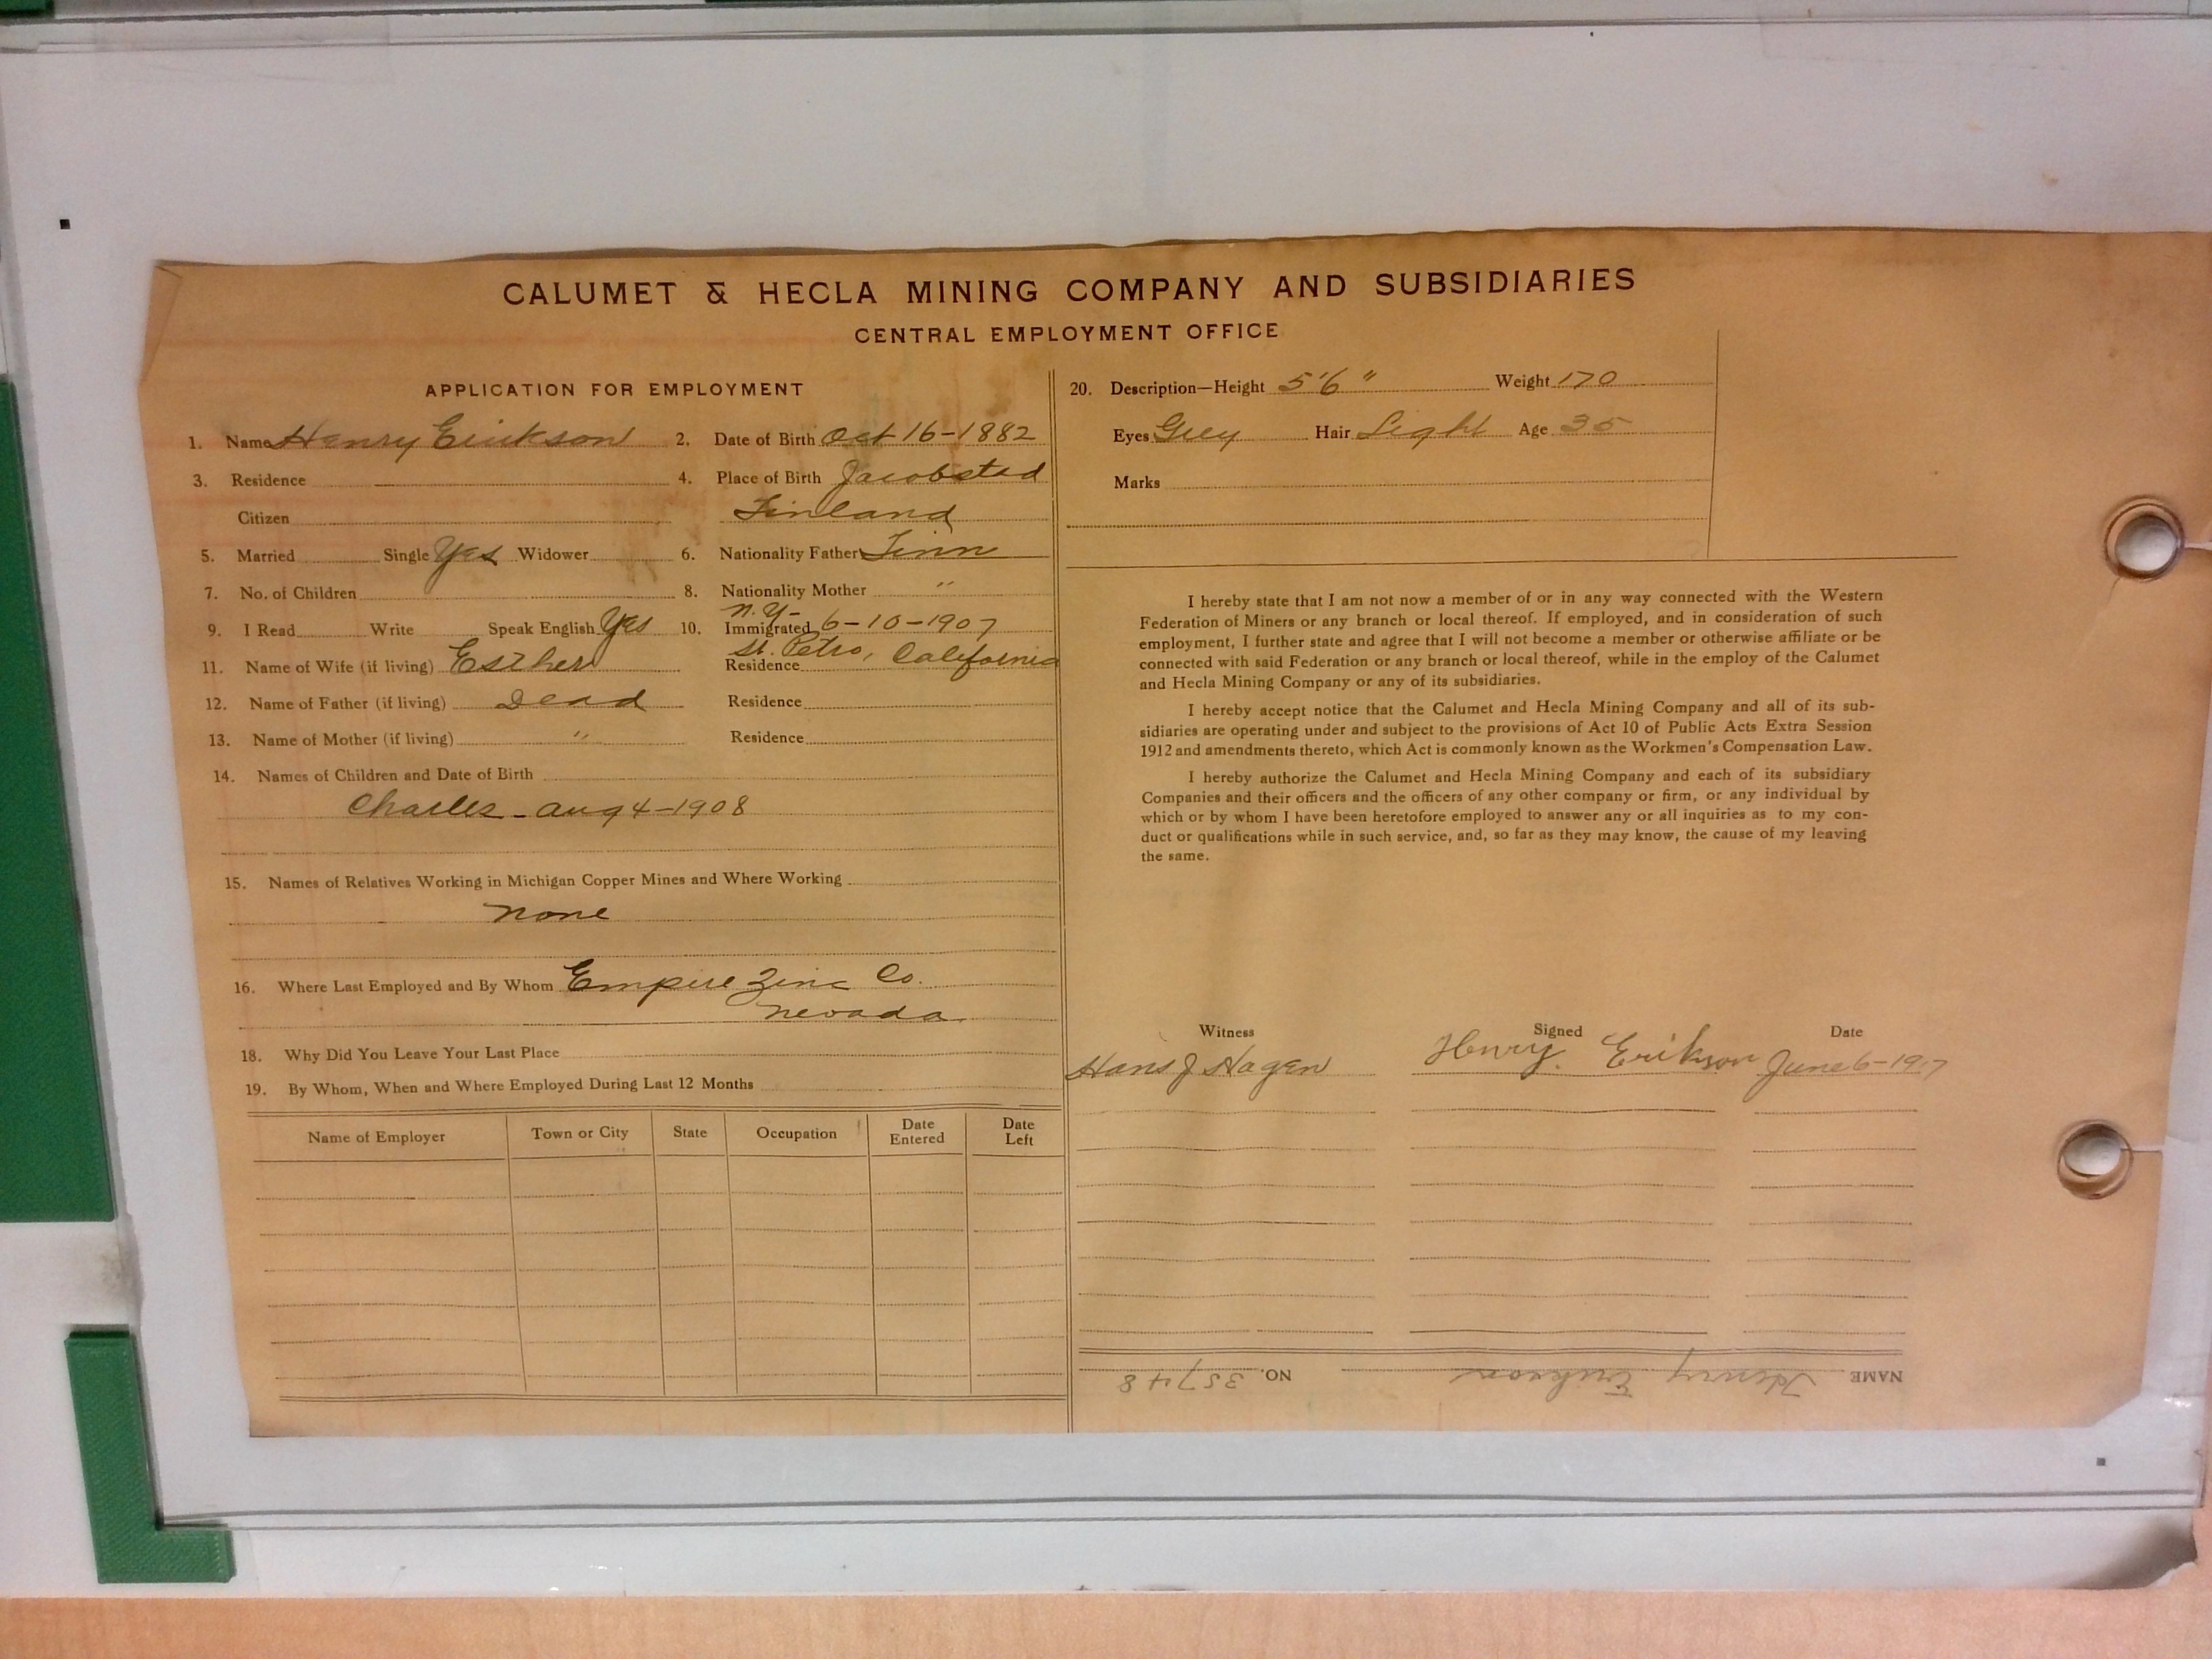 CALUMET & HECLA MINING COMPANY AND SUBSIDIARIES
CENTRAL EMPLOYMENT OFFICE
APPLICATION FOR EMPLOYMENT
1. Name Henry Erickson 2. Date of Birth Oct 16-1882
3. Residence 4. Place of Birth Jacobsted
Citizen Finland
5. Married Single Yes Widower 6. Nationality Father Finn
7. No. of Children 8. Nationality Mother "
N.Y-
9. I Read Write Speak English Yes 10. Immigrated 6-10-1907
St. Petro, California
11. Name of Wife (if living) Esther Residence
12. Name of Father (if living) Dead Residence
13. Name of Mother (if living) " Residence
14. Names of Children and Date of Birth
Charles - Aug 4-1908
15. Names of Relatives Working in Michigan Copper Mines and Where Working
None
16. Where Last Employed and By Whom Empire Zinc Co.
Nevada
18. Why Did You Leave Your Last Place
19. By Whom, When and Where Employed During Last 12 Months
Name of Employer Town or City State Occupation Date Entered Date Left
20. Description—Height 5'6" Weight 170
Eyes Grey Hair Light Age 35
Marks
I hereby state that I am not now a member of or in any way connected with the Western
Federation of Miners or any branch or local thereof. If employed, and in consideration of such
employment, I further state and agree that I will not become a member or otherwise affiliate or be
connected with said Federation or any branch or local thereof, while in the employ of the Calumet
and Hecla Mining Company or any of its subsidiaries.
I hereby accept notice that the Calumet and Hecla Mining Company and all of its sub-
sidiaries are operating under and subject to the provisions of Act 10 of Public Acts Extra Session
1912 and amendments thereto, which Act is commonly known as the Workmen's Compensation Law.
I hereby authorize the Calumet and Hecla Mining Company and each of its subsidiary
Companies and their officers and the officers of any other company or firm, or any individual by
which or by whom I have been heretofore employed to answer any or all inquiries as to my con-
duct or qualifications while in such service, and, so far as they may know, the cause of my leaving
the same.
Witness Signed Date
Hans J Hagen Henry Erikson June 6-1917
NAME Henry Erikson NO. 35748